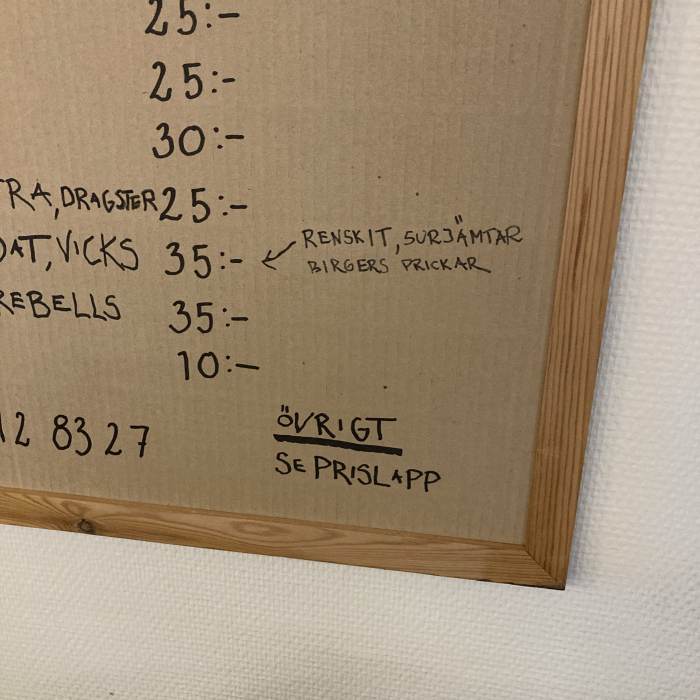 25:-
25:-
30:-
TRA, DRAGSTER 25:-
OAT, VICKS 35:- ← RENSKIT, SURJÄMTAR
BIRGERS PRICKAR
REBELLS 35:-
10:-
12 83 27
ÖVRIGT
SE PRISLAPP